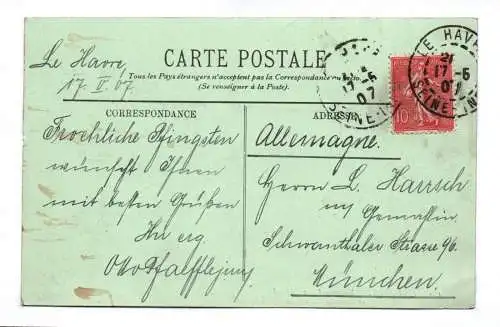 CARTE POSTALE
Tous les Pays étrangers n'acceptent pas la Correspondance au
(Se renseigner à la Poste).
Le Havre
17. V. 07.
LE HAVRE
21
17-5
07
SEINE-IN
17-5
07
10
CORRESPONDANCE
Froehliche Pfingsten
wünscht Ihnen
mit besten Grüßen
Ihr erg.
Otto
ADRESSE
Allemagne.
Herrn L. Harrsch
Schwanthaler Strasse 96.
München.